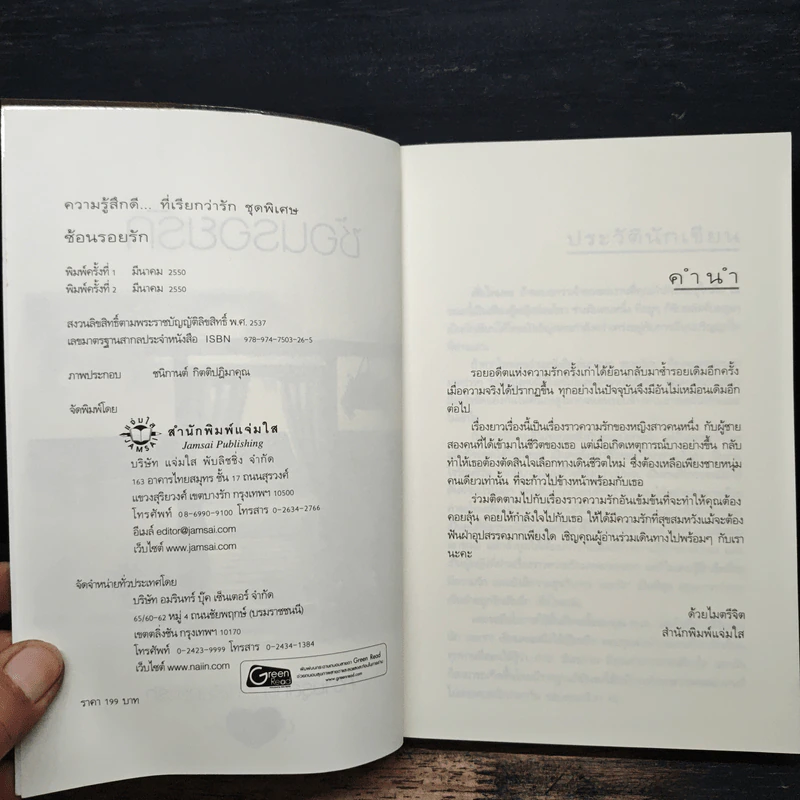 ความรู้สึกดี... ที่เรียกว่ารัก ชุดพิเศษ
ซ้อนรอยรัก
พิมพ์ครั้งที่ 1 มีนาคม 2550
พิมพ์ครั้งที่ 2 มีนาคม 2550
สงวนลิขสิทธิ์ตามพระราชบัญญัติลิขสิทธิ์ พ.ศ. 2537
เลขมาตรฐานสากลประจำหนังสือ ISBN 978-974-7503-26-5
ภาพประกอบ ชนิกานต์ กิตติปฏิมาคุณ
จัดพิมพ์โดย
แจ่มใส
JAMSAI
สำนักพิมพ์แจ่มใส
Jamsai Publishing
บริษัท แจ่มใส พับลิชชิ่ง จำกัด
163 อาคารไทยสมุทร ชั้น 17 ถนนสุรวงศ์
แขวงสุริยวงศ์ เขตบางรัก กรุงเทพฯ 10500
โทรศัพท์ 08-6990-9100 โทรสาร 0-2634-2766
อีเมล์ editor@jamsai.com
เว็บไซต์ www.jamsai.com
จัดจำหน่ายทั่วประเทศโดย
บริษัท อมรินทร์ บุ๊ค เซ็นเตอร์ จำกัด
65/60-62 หมู่ 4 ถนนชัยพฤกษ์ (บรมราชชนนี)
เขตตลิ่งชัน กรุงเทพฯ 10170
โทรศัพท์ 0-2423-9999 โทรสาร 0-2434-1384
เว็บไซต์ www.naiin.com
Green Read
Green Read
www.greenread.com
ราคา 199 บาท
คำนำ
รอยอดีตแห่งความรักครั้งเก่าได้ย้อนกลับมาซ้ำรอยเดิมอีกครั้ง
เมื่อความจริงได้ปรากฏขึ้น ทุกอย่างในปัจจุบันจึงมีอันไม่เหมือนเดิมอีก
ต่อไป
เรื่องยาวเรื่องนี้เป็นเรื่องราวความรักของหญิงสาวคนหนึ่ง กับผู้ชาย
สองคนที่ได้เข้ามาในชีวิตของเธอ แต่เมื่อเกิดเหตุการณ์บางอย่างขึ้น กลับ
ทำให้เธอต้องตัดสินใจเลือกทางเดินชีวิตใหม่ ซึ่งต้องเหลือเพียงชายหนุ่ม
คนเดียวเท่านั้น ที่จะก้าวไปข้างหน้าพร้อมกับเธอ
ร่วมติดตามไปกับเรื่องราวความรักอันเข้มข้นที่จะทำให้คุณต้อง
คอยลุ้น คอยให้กำลังใจไปกับเธอ ให้ได้มีความรักที่สุขสมหวังแม้จะต้อง
ฟันฝ่าอุปสรรคมากเพียงใด เชิญคุณผู้อ่านร่วมเดินทางไปพร้อมๆ กับเรา
นะคะ
ด้วยไมตรีจิต
สำนักพิมพ์แจ่มใส